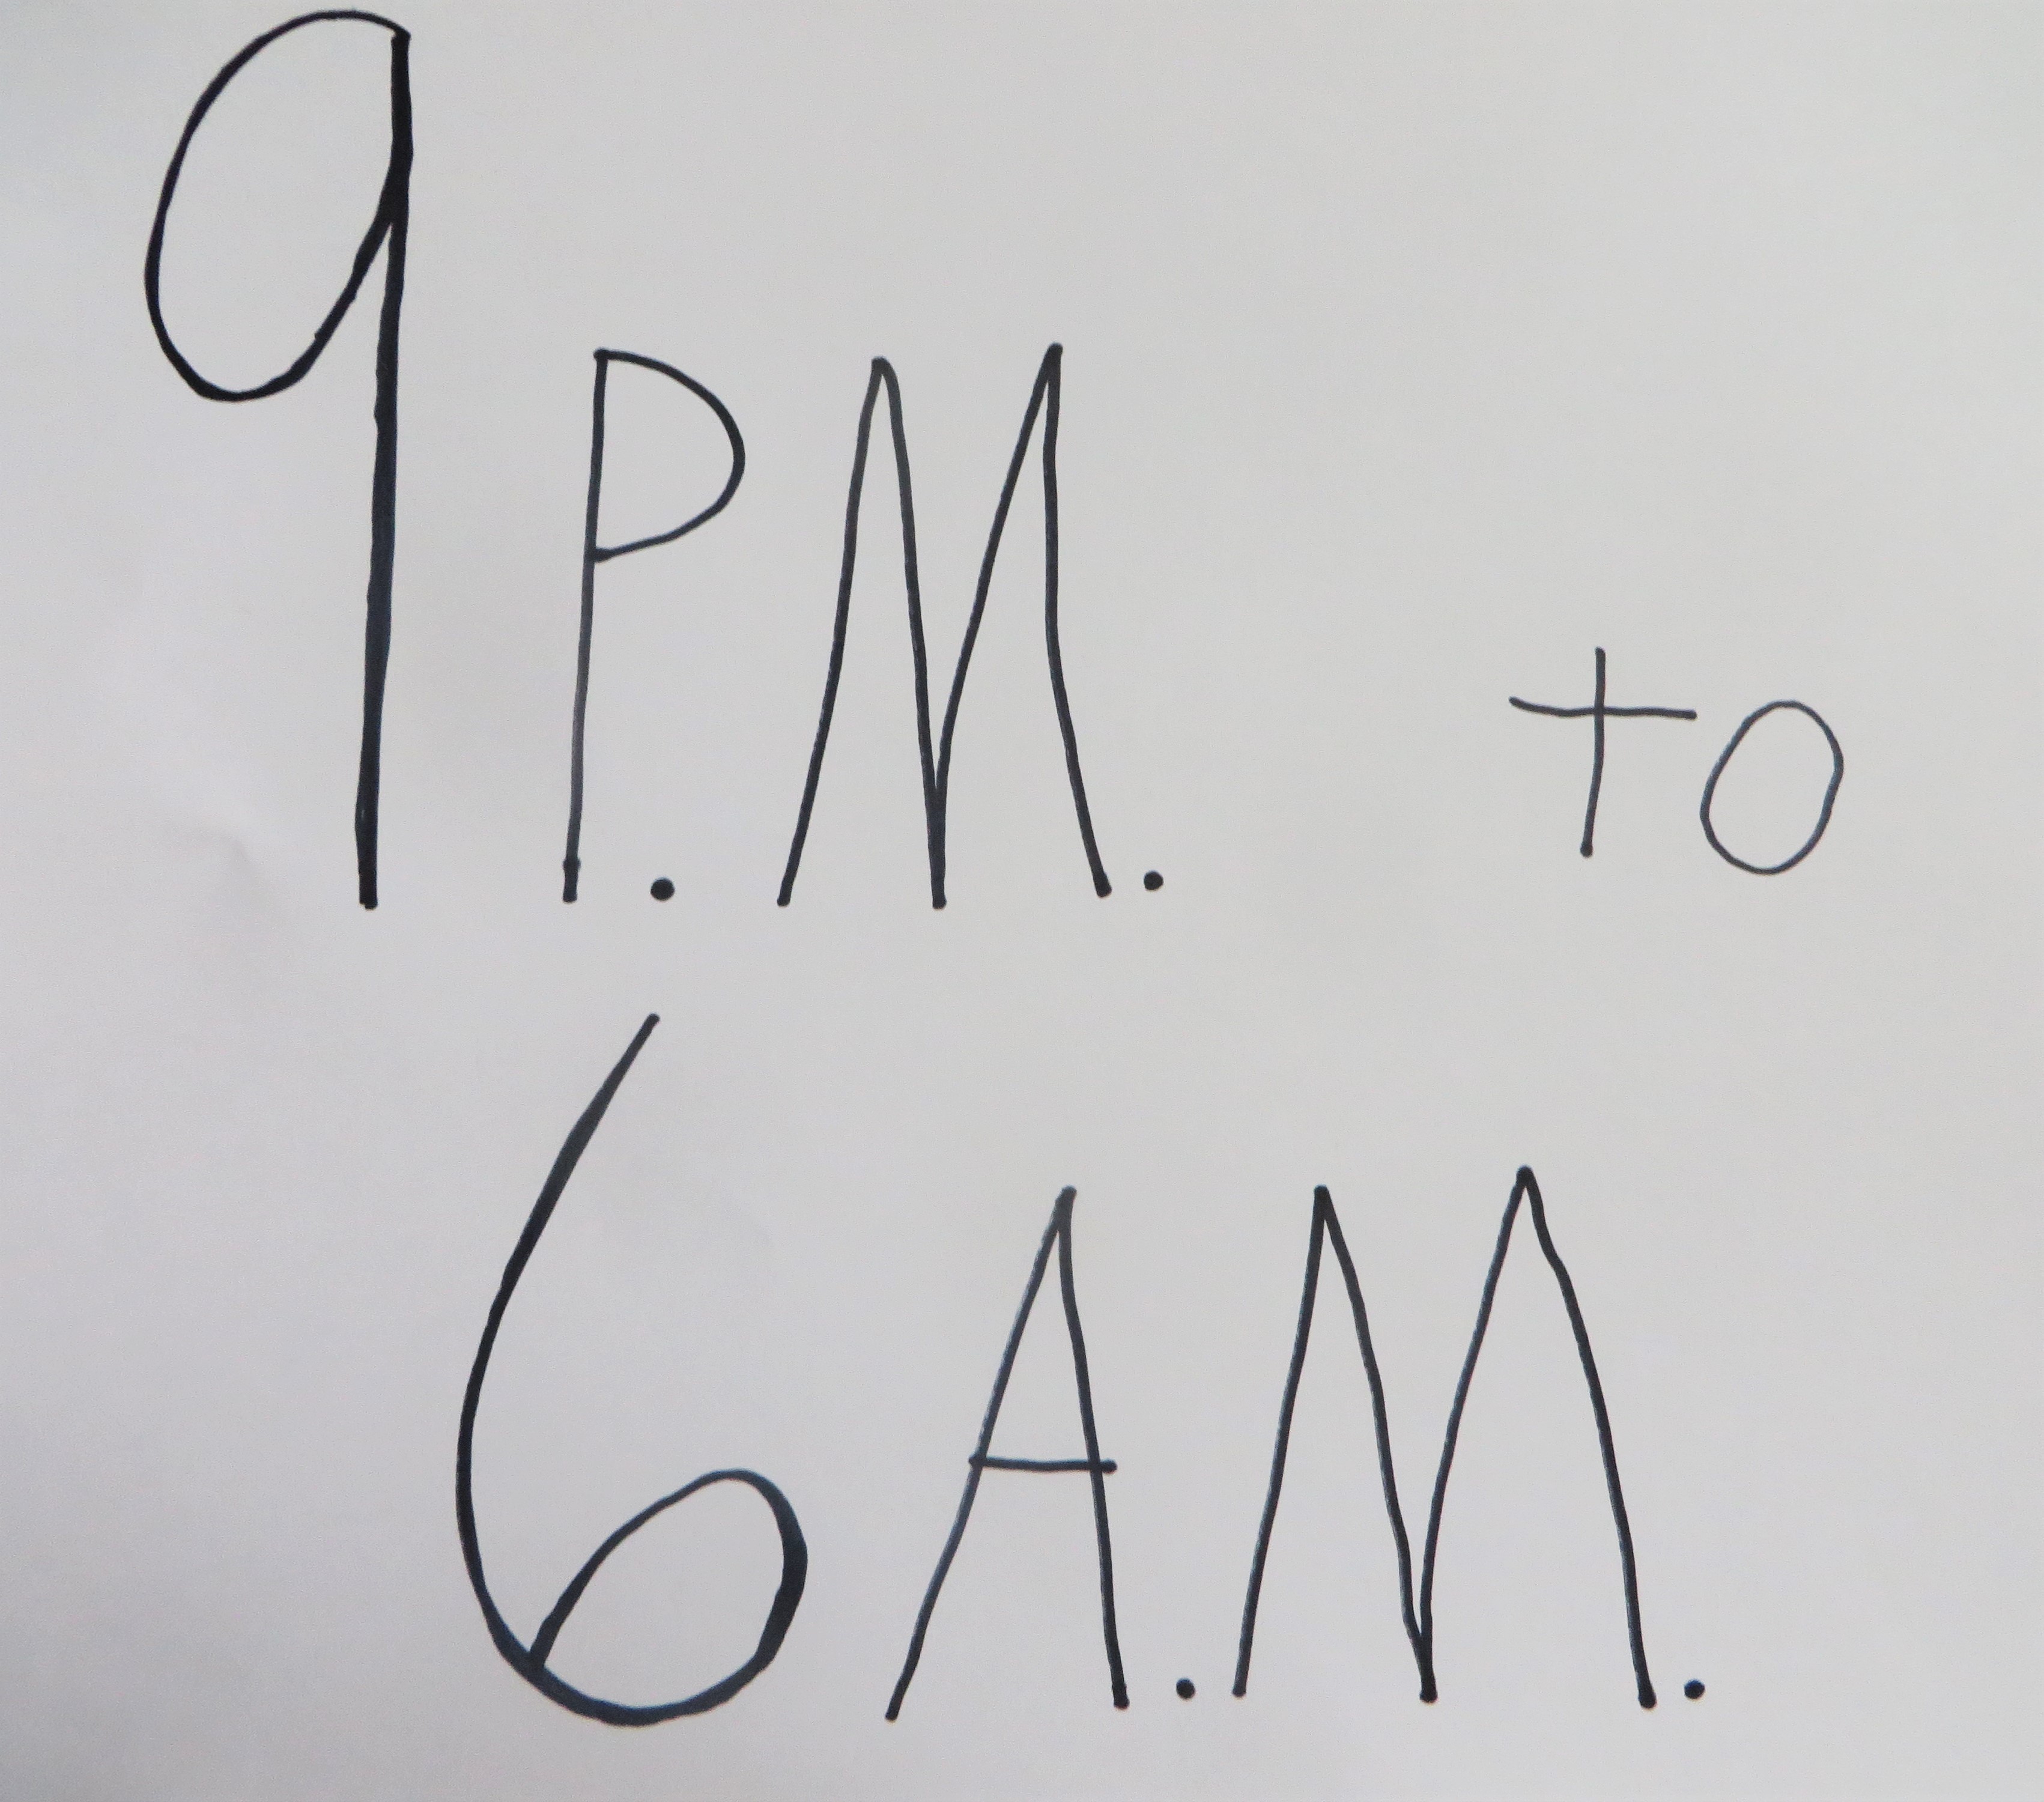 9 P.M. to
6 A.M.